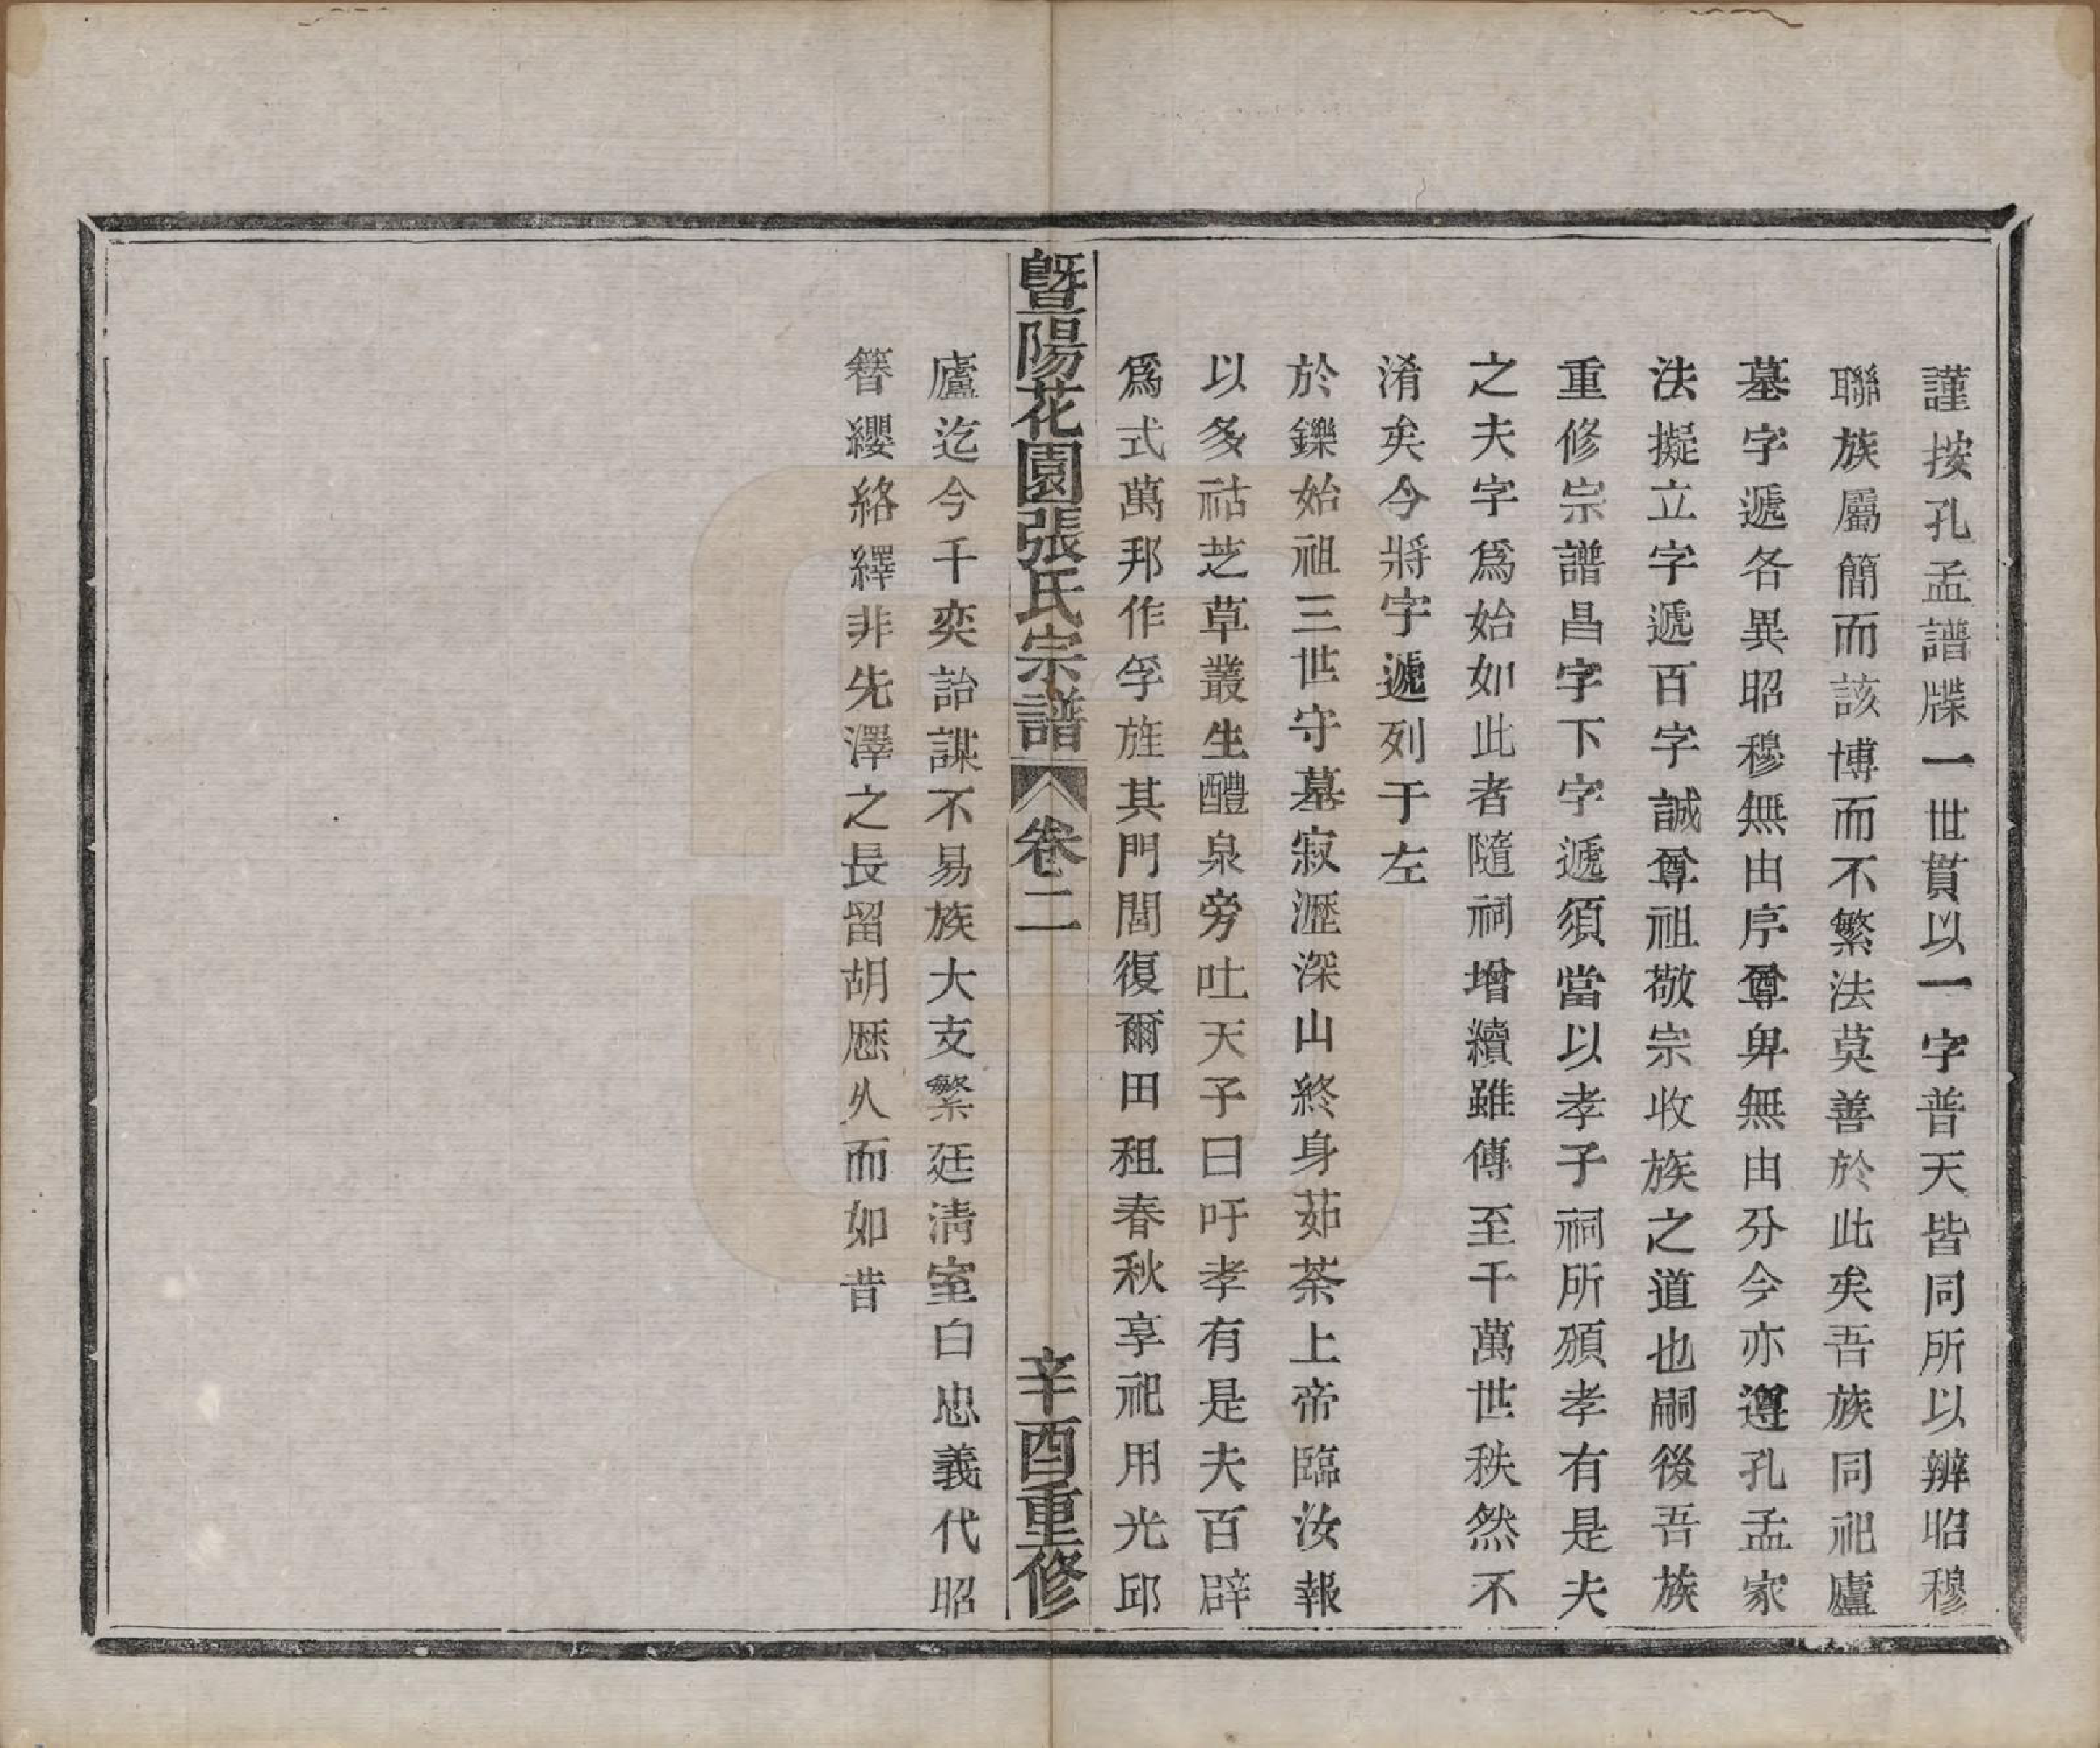 謹按孔孟譜牒一世貫以一字普天皆同所以辨昭穆
聯族屬簡而該博而不繁法莫善於此矣吾族同祀廬
墓字遞各異昭穆無由序尊卑無由分今亦遵孔孟家
法擬立字遞百字誠尊祖敬宗收族之道也嗣後吾族
重修宗譜昌字下字遞須當以孝子祠所頒孝有是夫
之夫字為始如此者隨祠增續雖傳至千萬世秩然不
淆矣今將字遞列于左
於鑠始祖三世守墓寂瀝深山終身茹荼上帝臨汝報
以多祜芝草叢生醴泉旁吐天子曰吁孝有是夫百辟
為式萬邦作孚旌其門閭復爾田租春秋享祀用光邱
暨陽花園張氏宗譜 卷二 辛酉重修
廬迄今千奕詒謀不易族大支繁廷清室白忠義代昭
簪纓絡繹非先澤之長留胡歷久而如昔